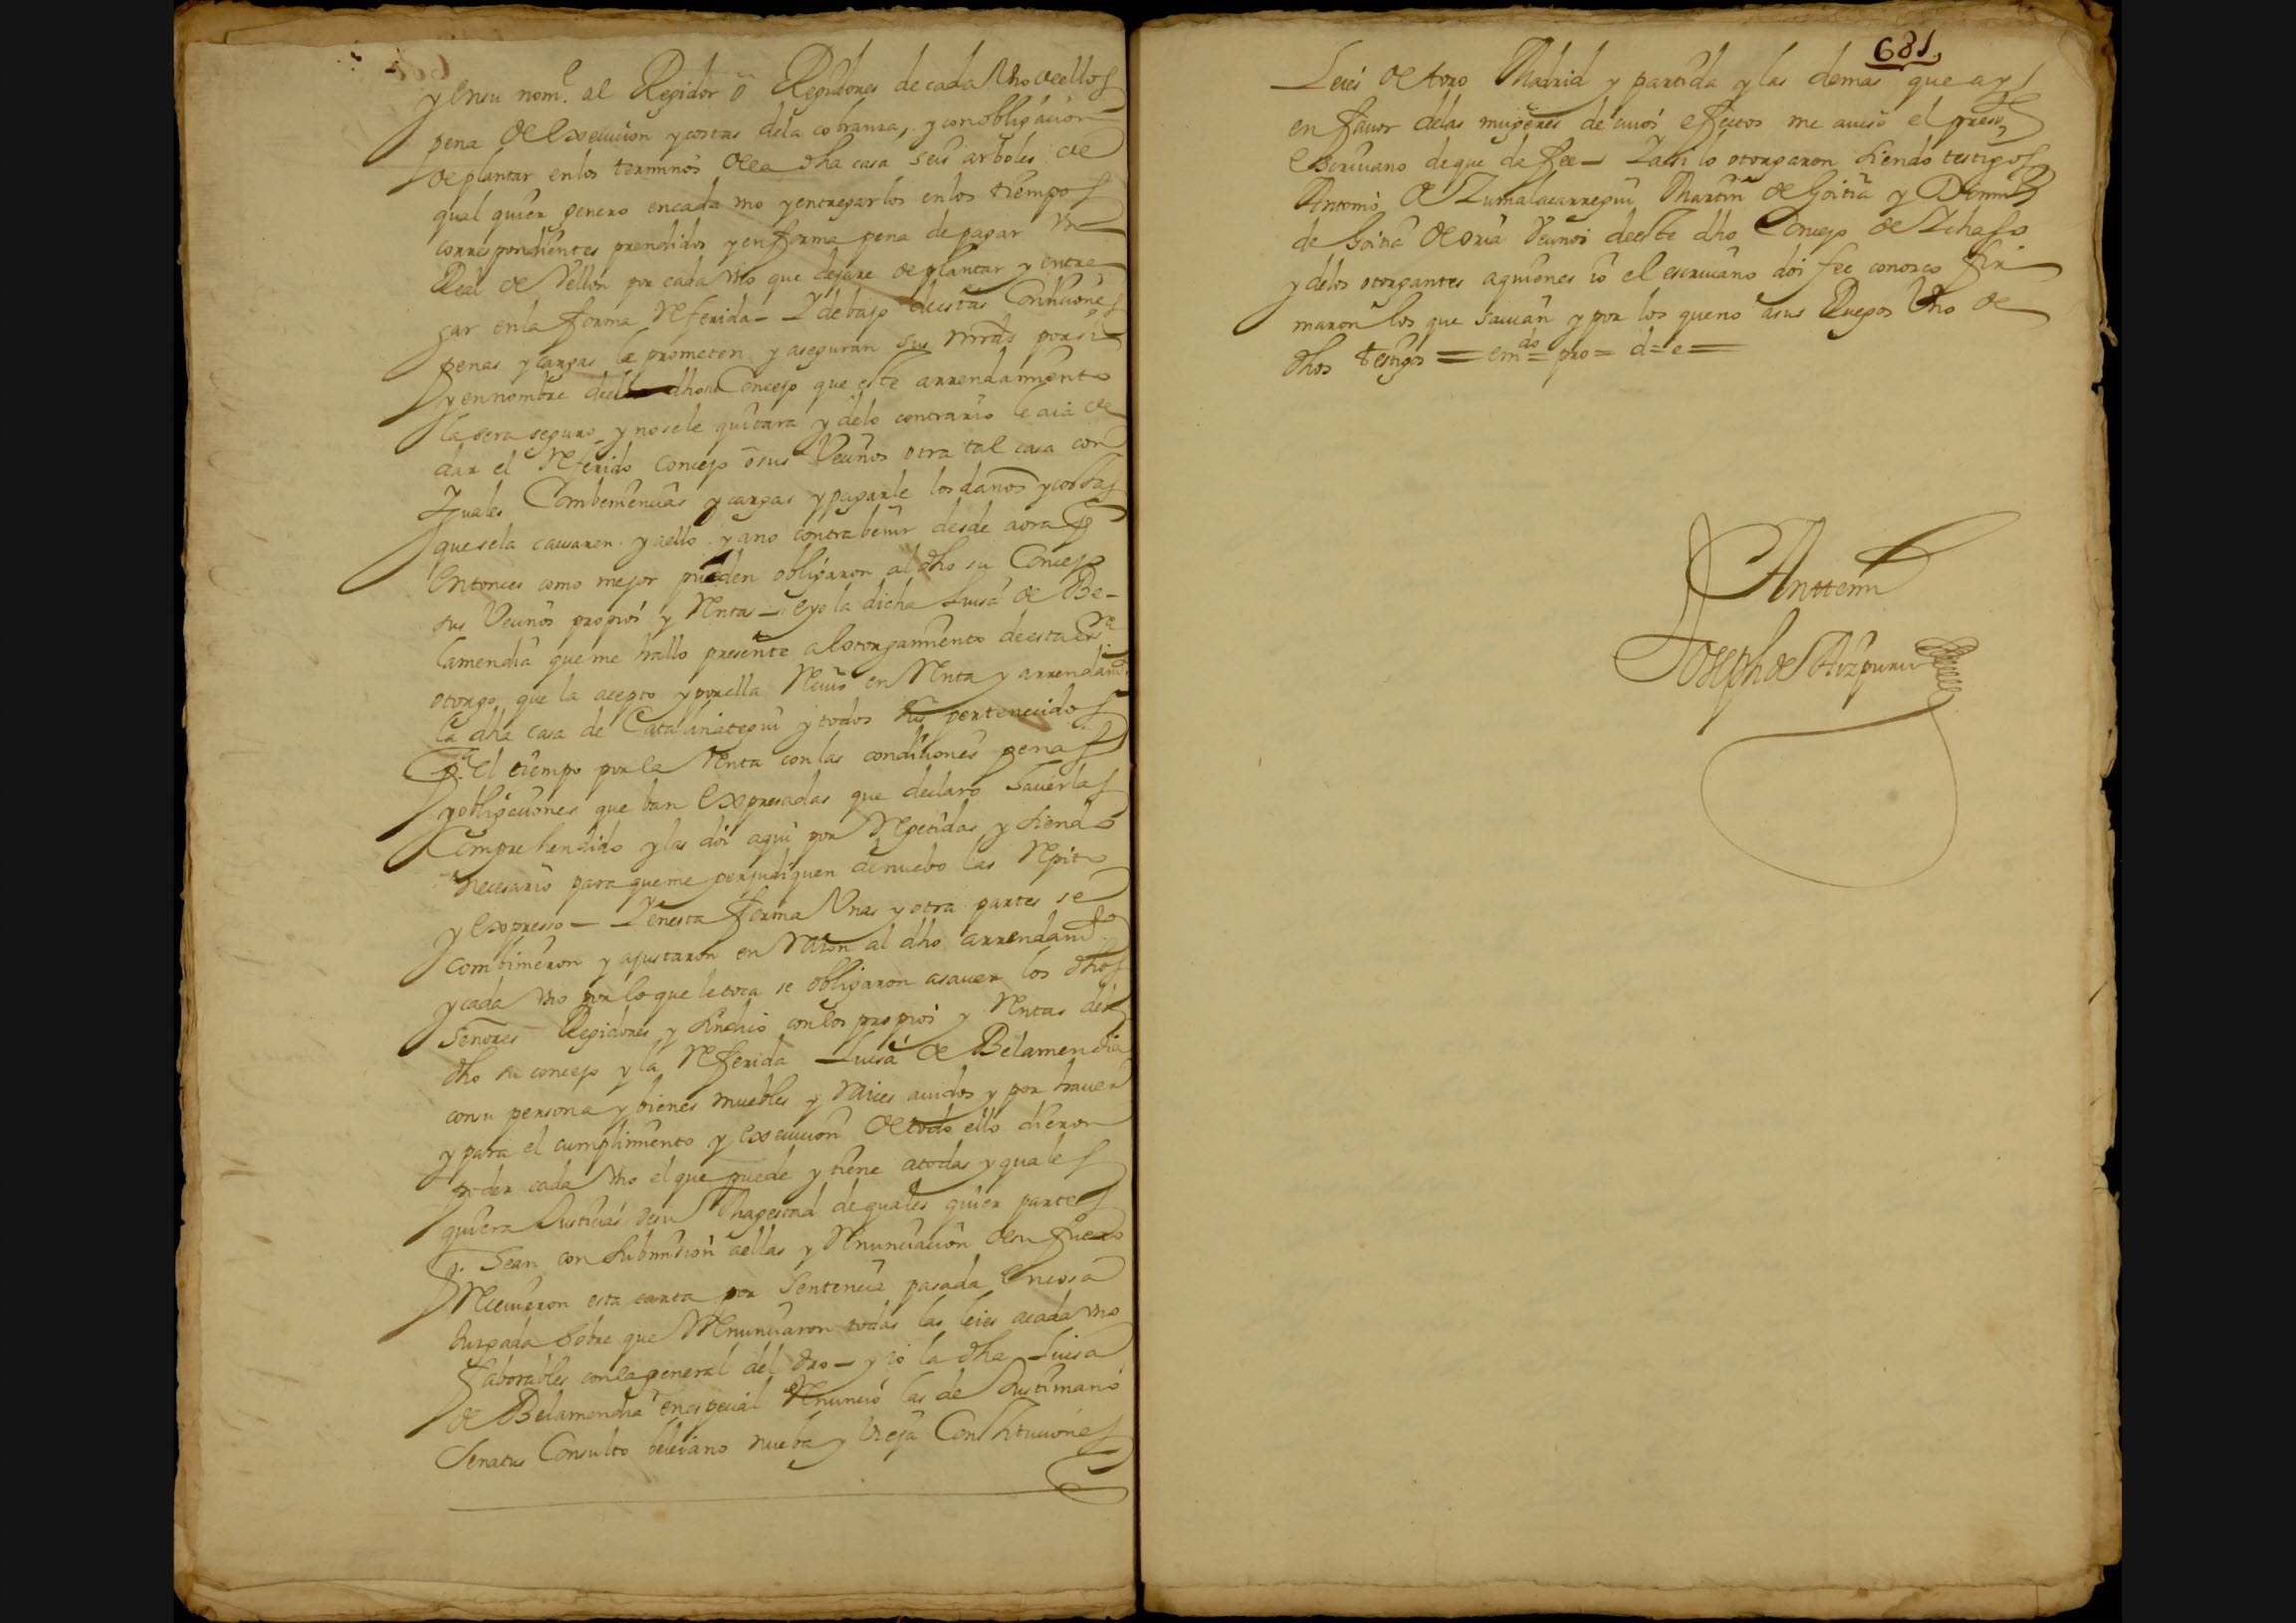 y en su nom.e al Regidor o Regidores de cada Año de ellos
pena de execucion y costas de la cobranza, y con obligacion
de plantar en los terminos de la dha casa seis arboles de
qual quier genero en cada año y entregarlos en los tiempos
correspondientes prendidos y en forma pena de pagar un
Real de Vellon por cada uno que dejare de plantar y entre
gar en la forma referida – Y debajo de estas Condiciones
penas y cargas le prometen y aseguran sus mrds por si
y en nombre del dho su Concejo que este arrendamiento
la sera seguro y no se le quitara y de lo contrario le aia de
dar el referido concejo o sus Vecinos otra tal casa con
Yguales Combeniencias y cargas y pagarle los daños y costas
que se la causaren y a ello y a no contrabenir desde aora p.a
entonces como mejor pueden obligaron al dho su Concejo
sus Vecinos propios y rentas – e yo la dicha Luisa de Be-
lamendia que me hallo presente al otorgamiento de esta esra
otorgo que la acepto y por ella reciuo en renta y arrendam.to
la dha casa de Catalinategui y todos sus pertenecidos
p.a el tiempo por la renta con las condiciones penas
y obligaciones que ban expresadas que declaro sauerlas
comprehendido y las doi aqui por repetidas y siendo
necesario para que me perjudiquen de nuebo las repito
y expresso – Y en esta forma Unas y otra partes se
combinieron y ajustaron en razon al dho arrendam.to
y cada uno por lo que le toca se obligaron asauer los dhos
señores Regidores y Sindico con los propios y rentas del
dho su concejo y la referida Luisa de Belamendia
con su persona y bienes muebles y raices auidos y por hauer
y para el cumplimiento y execucion de todo ello dieron
poder cada uno el que puede y tiene a todas y quales
quiera Justicias de su Magestad de quales quier partes
q. sean con submision a ellas y renunciacion de su fuero
reciuieron esta carta por sentencia pasada en cosa
Juzgada sobre que renunciaron todas las leies a cada uno
faborables con la general del dro – y io la dha Luisa
de Belamendia en especial renuncio las de Justiniano
Senatus Consulto beleiano nueba y vieja Constituciones
681,
Leies de toro Madrid y partida y las demas que ay
en fauor de las mugeres de cuios efectos me auiso el press.te
escriuano de que da fee – Y assi lo otorgaron siendo testigos
Antonio de Zumalacarregui Martin de Goitia y Domin.o
de Goitia de oria Vecinos de este dho Concejo de Ichaso
y de los otorgantes a quienes io el escriuano doi fee conosco fir
maron los que sauian y por los que no a sus Ruegos Uno de
dhos testigos = em.do = pro = d = e =
Antte mi
Joseph de Aizpuru